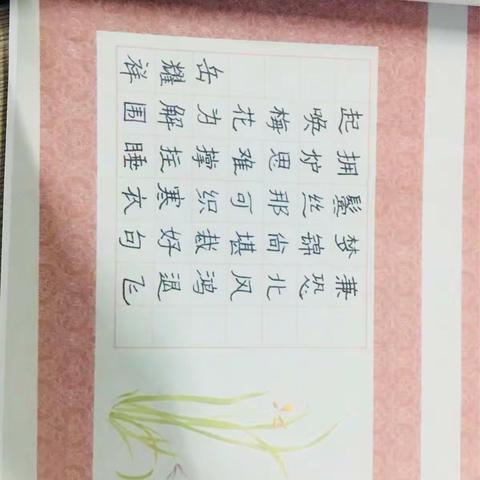 兼恐北风鸿退飞
梦锦尚堪裁好句
鬓丝那可织寒衣
拥炉思难撑拄睡
起唤梅花力解围
岳耀祥